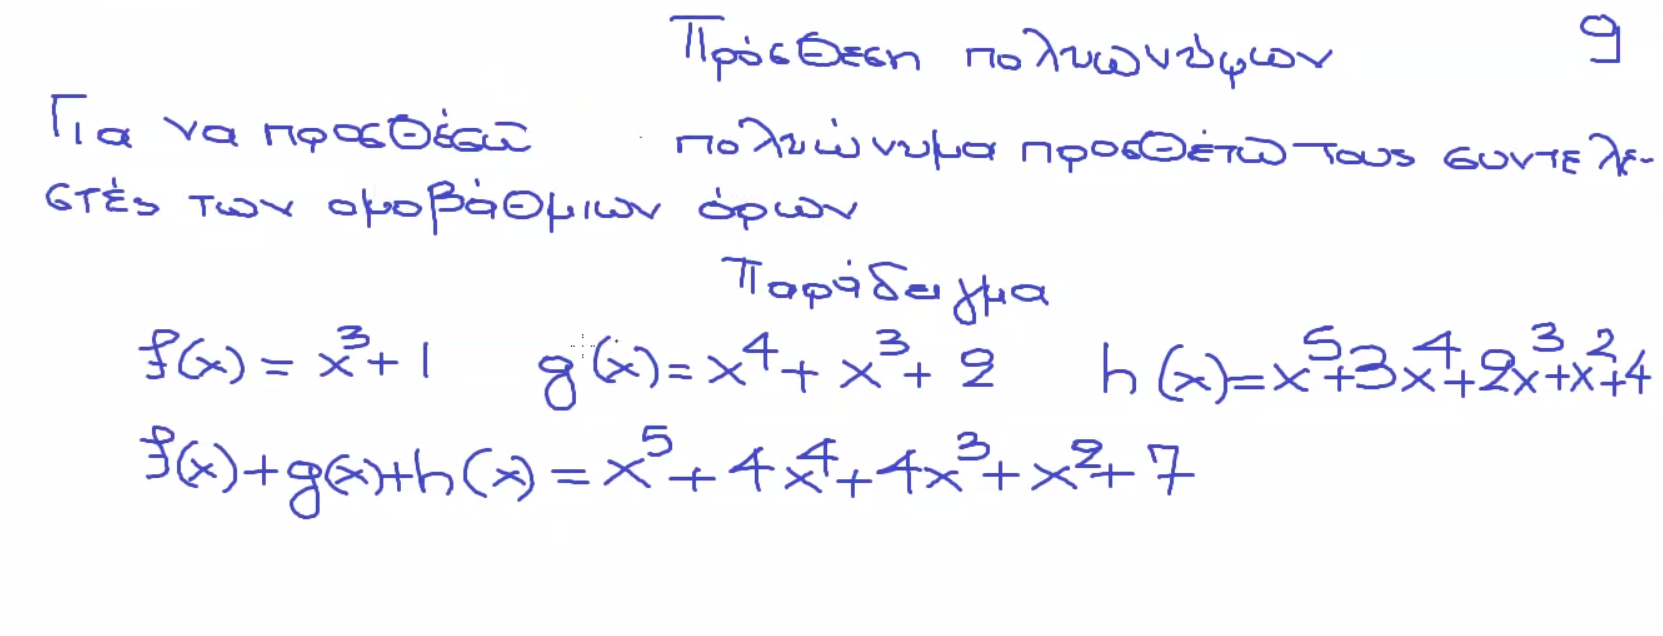 Πρόσθεση πολυωνύμων 9
Για να προσθέσω πολυώνυμα προσθέτω τους συντελε-
στές των ομοβάθμιων όρων
Παράδειγμα
f(x) = x³ + 1 g(x) = x⁴ + x³ + 2 h(x) = x⁵+3x⁴+2x³+x²+4
f(x)+g(x)+h(x) = x⁵ + 4x⁴ + 4x³ + x² + 7